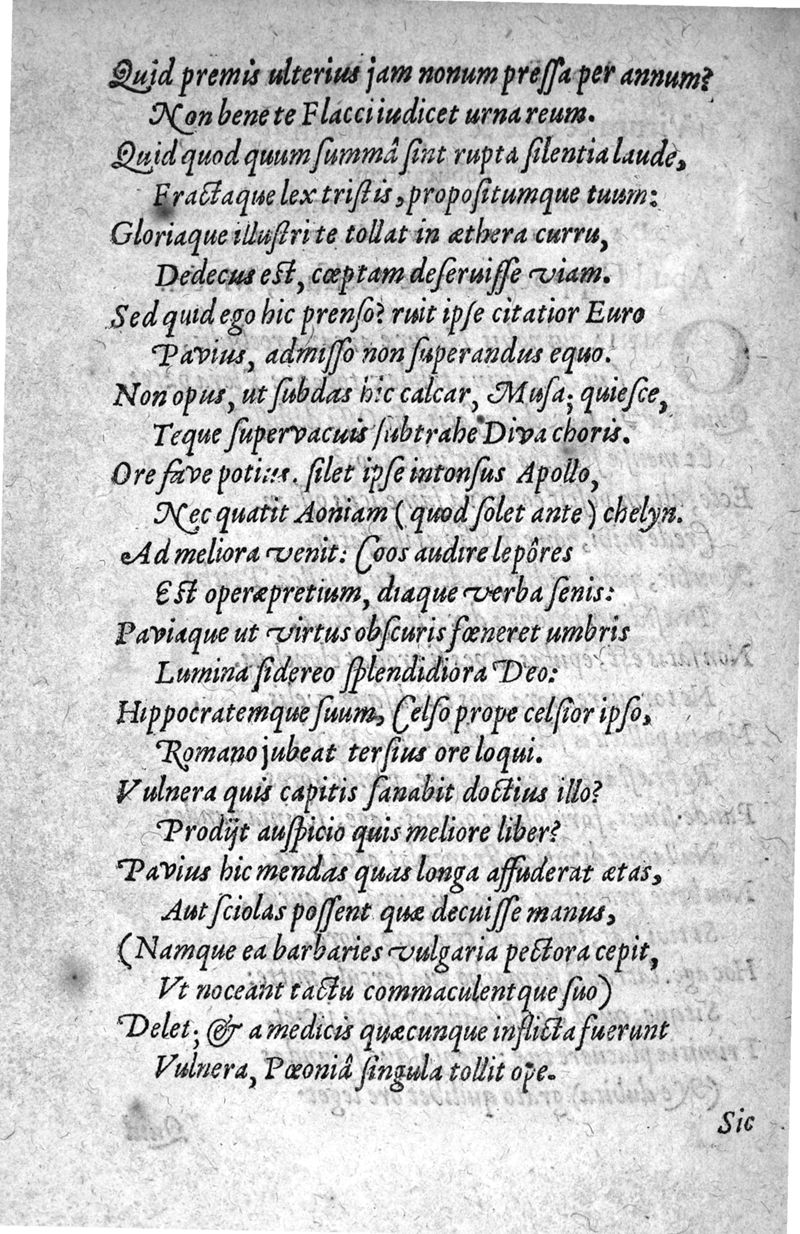 Quid premis ulterius jam nonum preſſa per annum?
Non bene te Flacci iudicet urna reum.
Quid quod quum ſummâ ſint rupta ſilentia laude,
Fractaque lex triſtis, propoſitumque tuum:
Gloriaque illuſtri te tollat in æthera curru,
Dedecus eſt, cœptam deſeruiſſe viam.
Sed quid ego hic prenſo? ruit ipſe citatior Euro
Pavius, admiſſo non ſuperandus equo.
Non opus, ut ſubdas hic calcar, Muſa; quieſce,
Teque ſupervacuis ſubtrahe Diva choris.
Ore fave potius. ſilet ipſe intonſus Apollo,
Nec quatit Aoniam (quod ſolet ante) chelyn.
Ad meliora venit: Coos audire lepôres
Eſt operæpretium, diaque verba ſenis:
Paviaque ut virtus obſcuris fœneret umbris
Lumina ſidereo ſplendidiora Deo:
Hippocratemque ſuum, Celſo prope celſior ipſo,
Romano jubeat terſius ore loqui.
Vulnera quis capitis ſanabit doctius illo?
Prodijt auſpicio quis meliore liber?
Pavius hic mendas quas longa affuderat ætas,
Aut ſciolas poſſent quæ decuiſſe manus,
(Namque ea barbaries vulgaria pectora cepit,
Vt noceant tactu commaculentque ſuo)
Delet; & a medicis quæcunque inflicta fuerunt
Vulnera, Pœoniâ ſingula tollit ope.
Sic